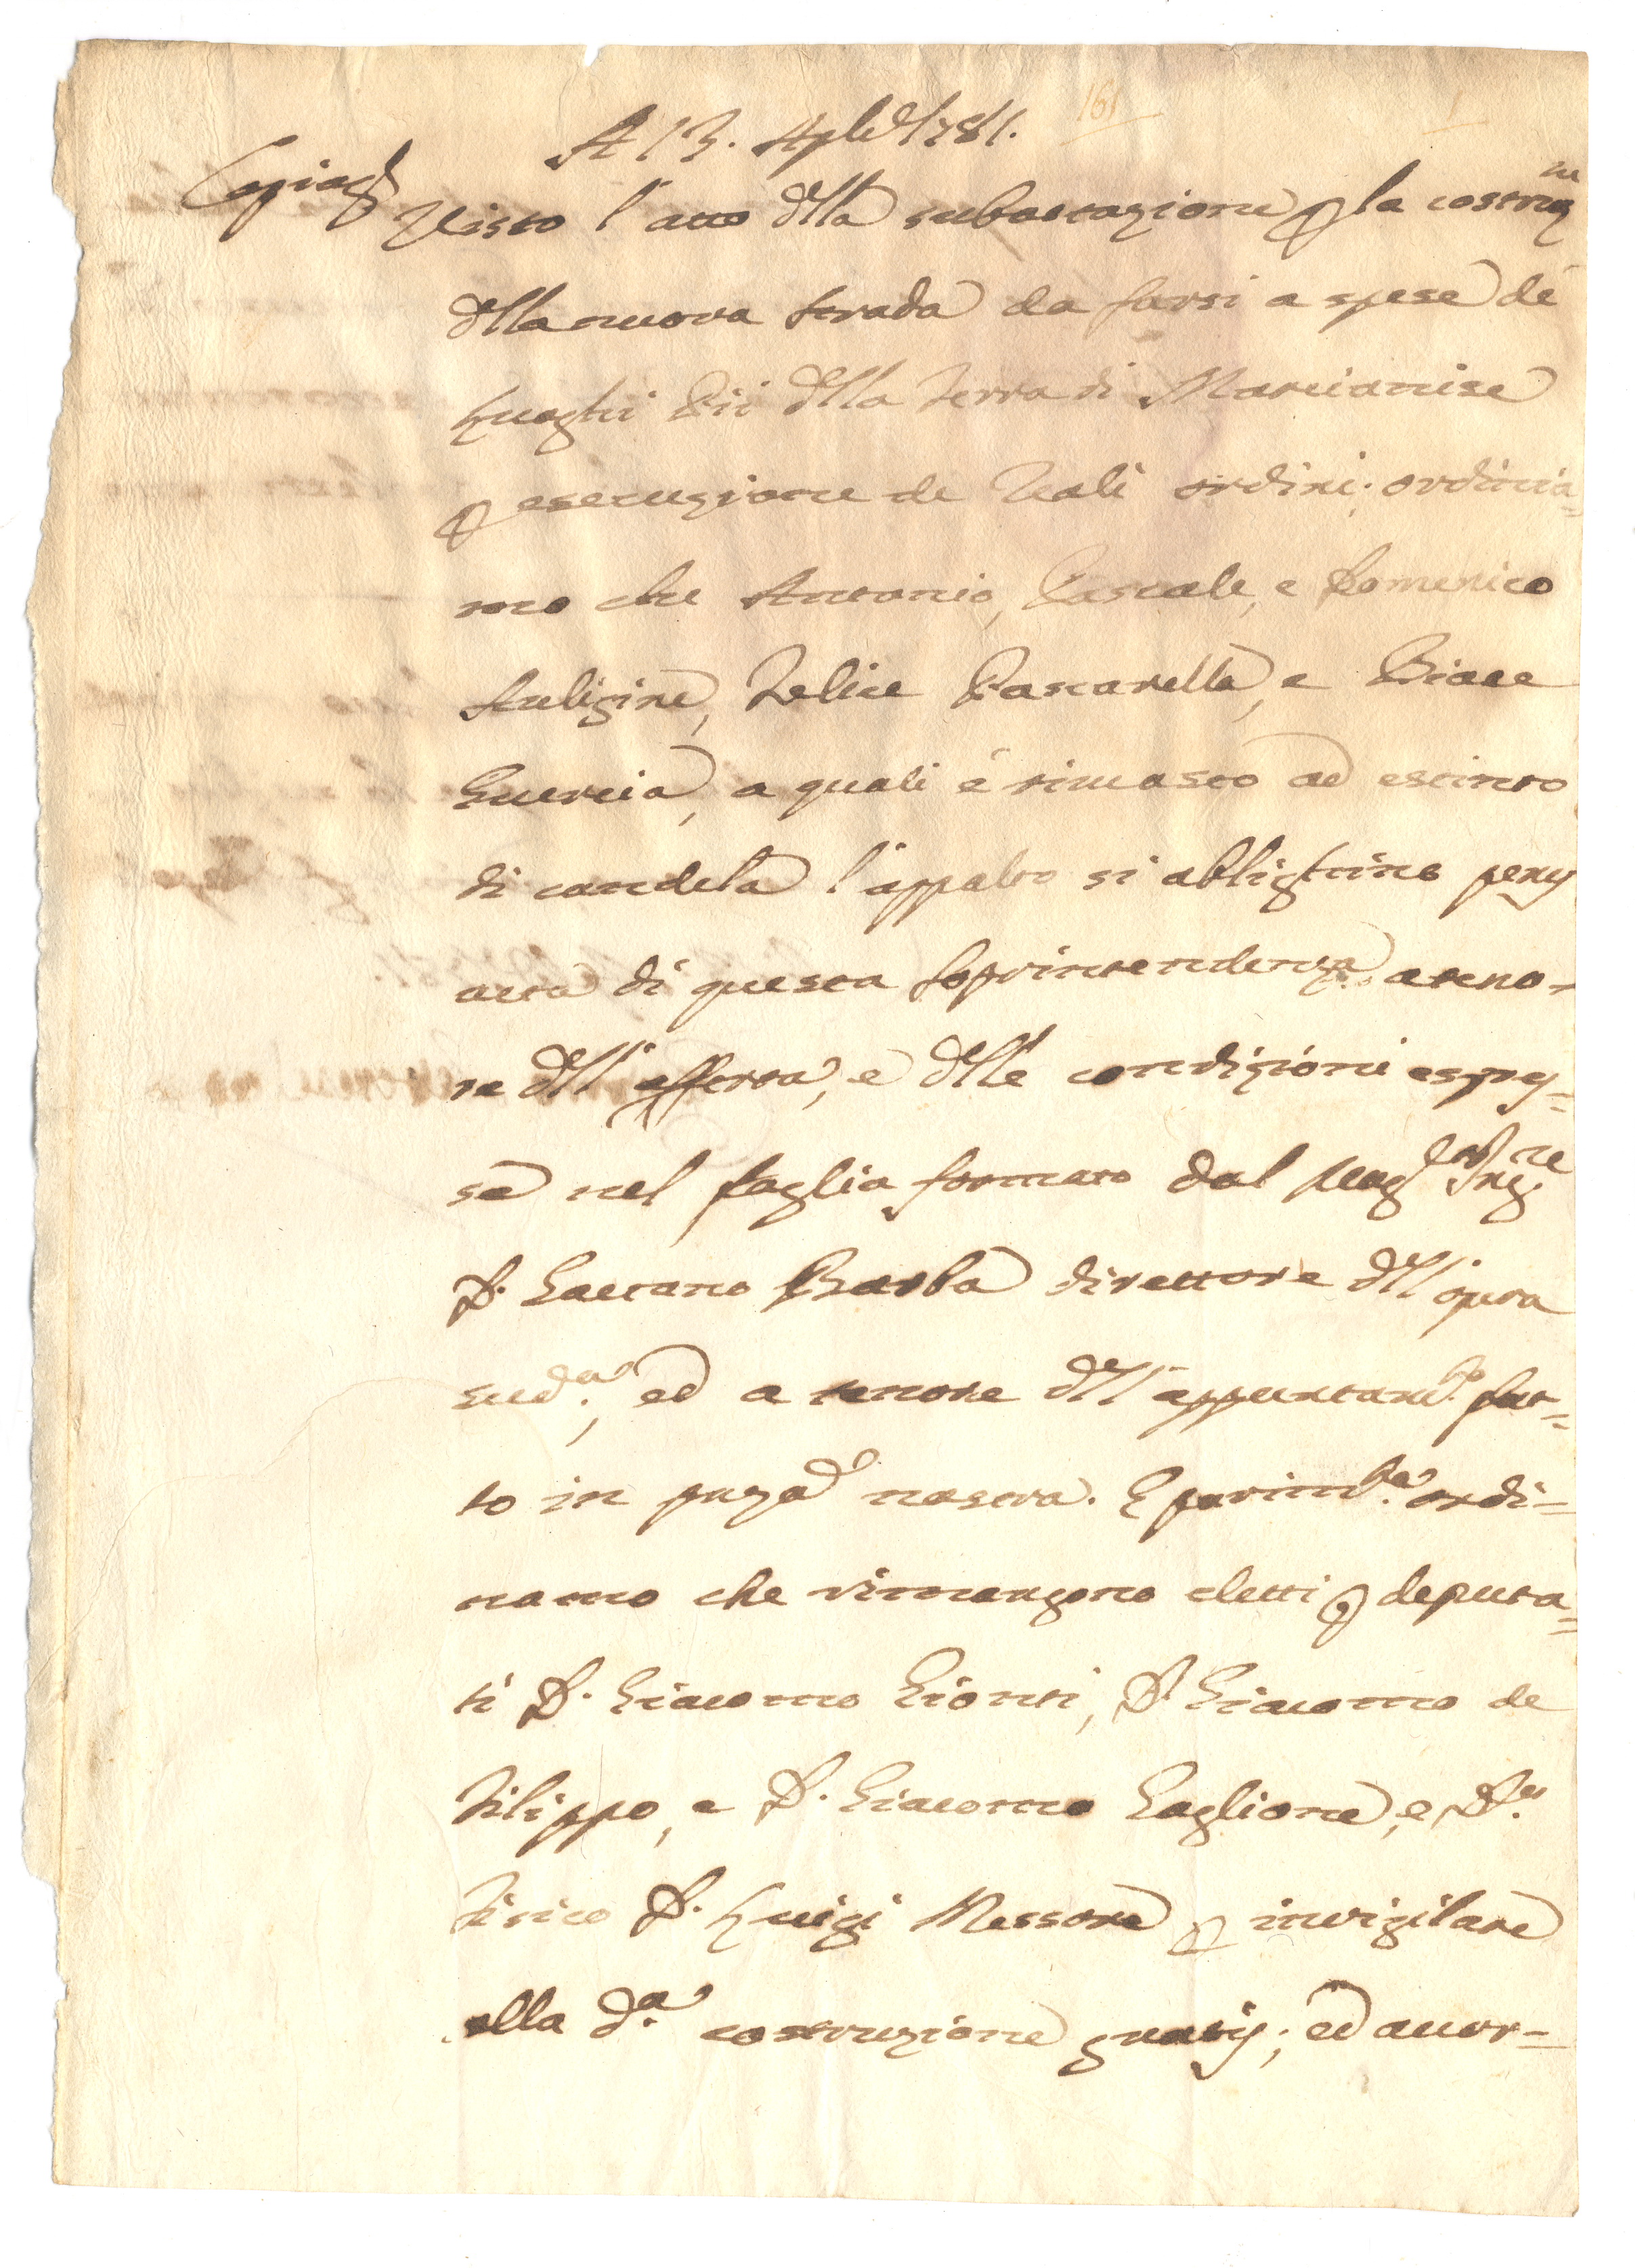 161 1
A 13. Aple 1781.
Copia
Visto l'atto della subastazione p la costruz.ne
della nuova strada da farsi a spese de'
Luoghi Pii della Terra di Marcianise
p esecuzione de Reali ordini; ordinia=
mo che Antonio, Pascale, e Domenico
Felice Pascarella, e Biase
Guercia, a quali è rimasto ad estinto
di candela l'appalto si oblighino
acta di questa Soprintendenza a teno=
re dell'offerta, e delle condizioni espres=
se nel foglio formato dal Mag.co Ing.re
D. Gaetano Barba direttore dell'opera
sud.a, ed a tenore dell'appuntam.to fat=
to in pñza nostra. E parim.te ordi=
namo che rimangono eletti p deputa=
ti D. Giacomo Gionti, D. Giacomo de
Filippo, e D. Giacomo Gaglione, e D.r
Fisico D. Luigi Messore p invigilare
alla d.a costruzione gratis; ed accor=